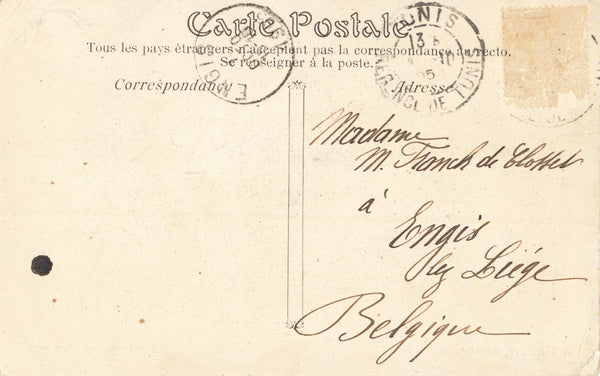 Carte Postale
Tous les pays étrangers n'acceptent pas la correspondance au recto.
Se renseigner à la poste.
Correspondance
Adresse
ENGIS
TUNIS
REGENCE DE TUNIS
Madame
M. Franck de Closset
à
Engis
lez Liége
Belgique